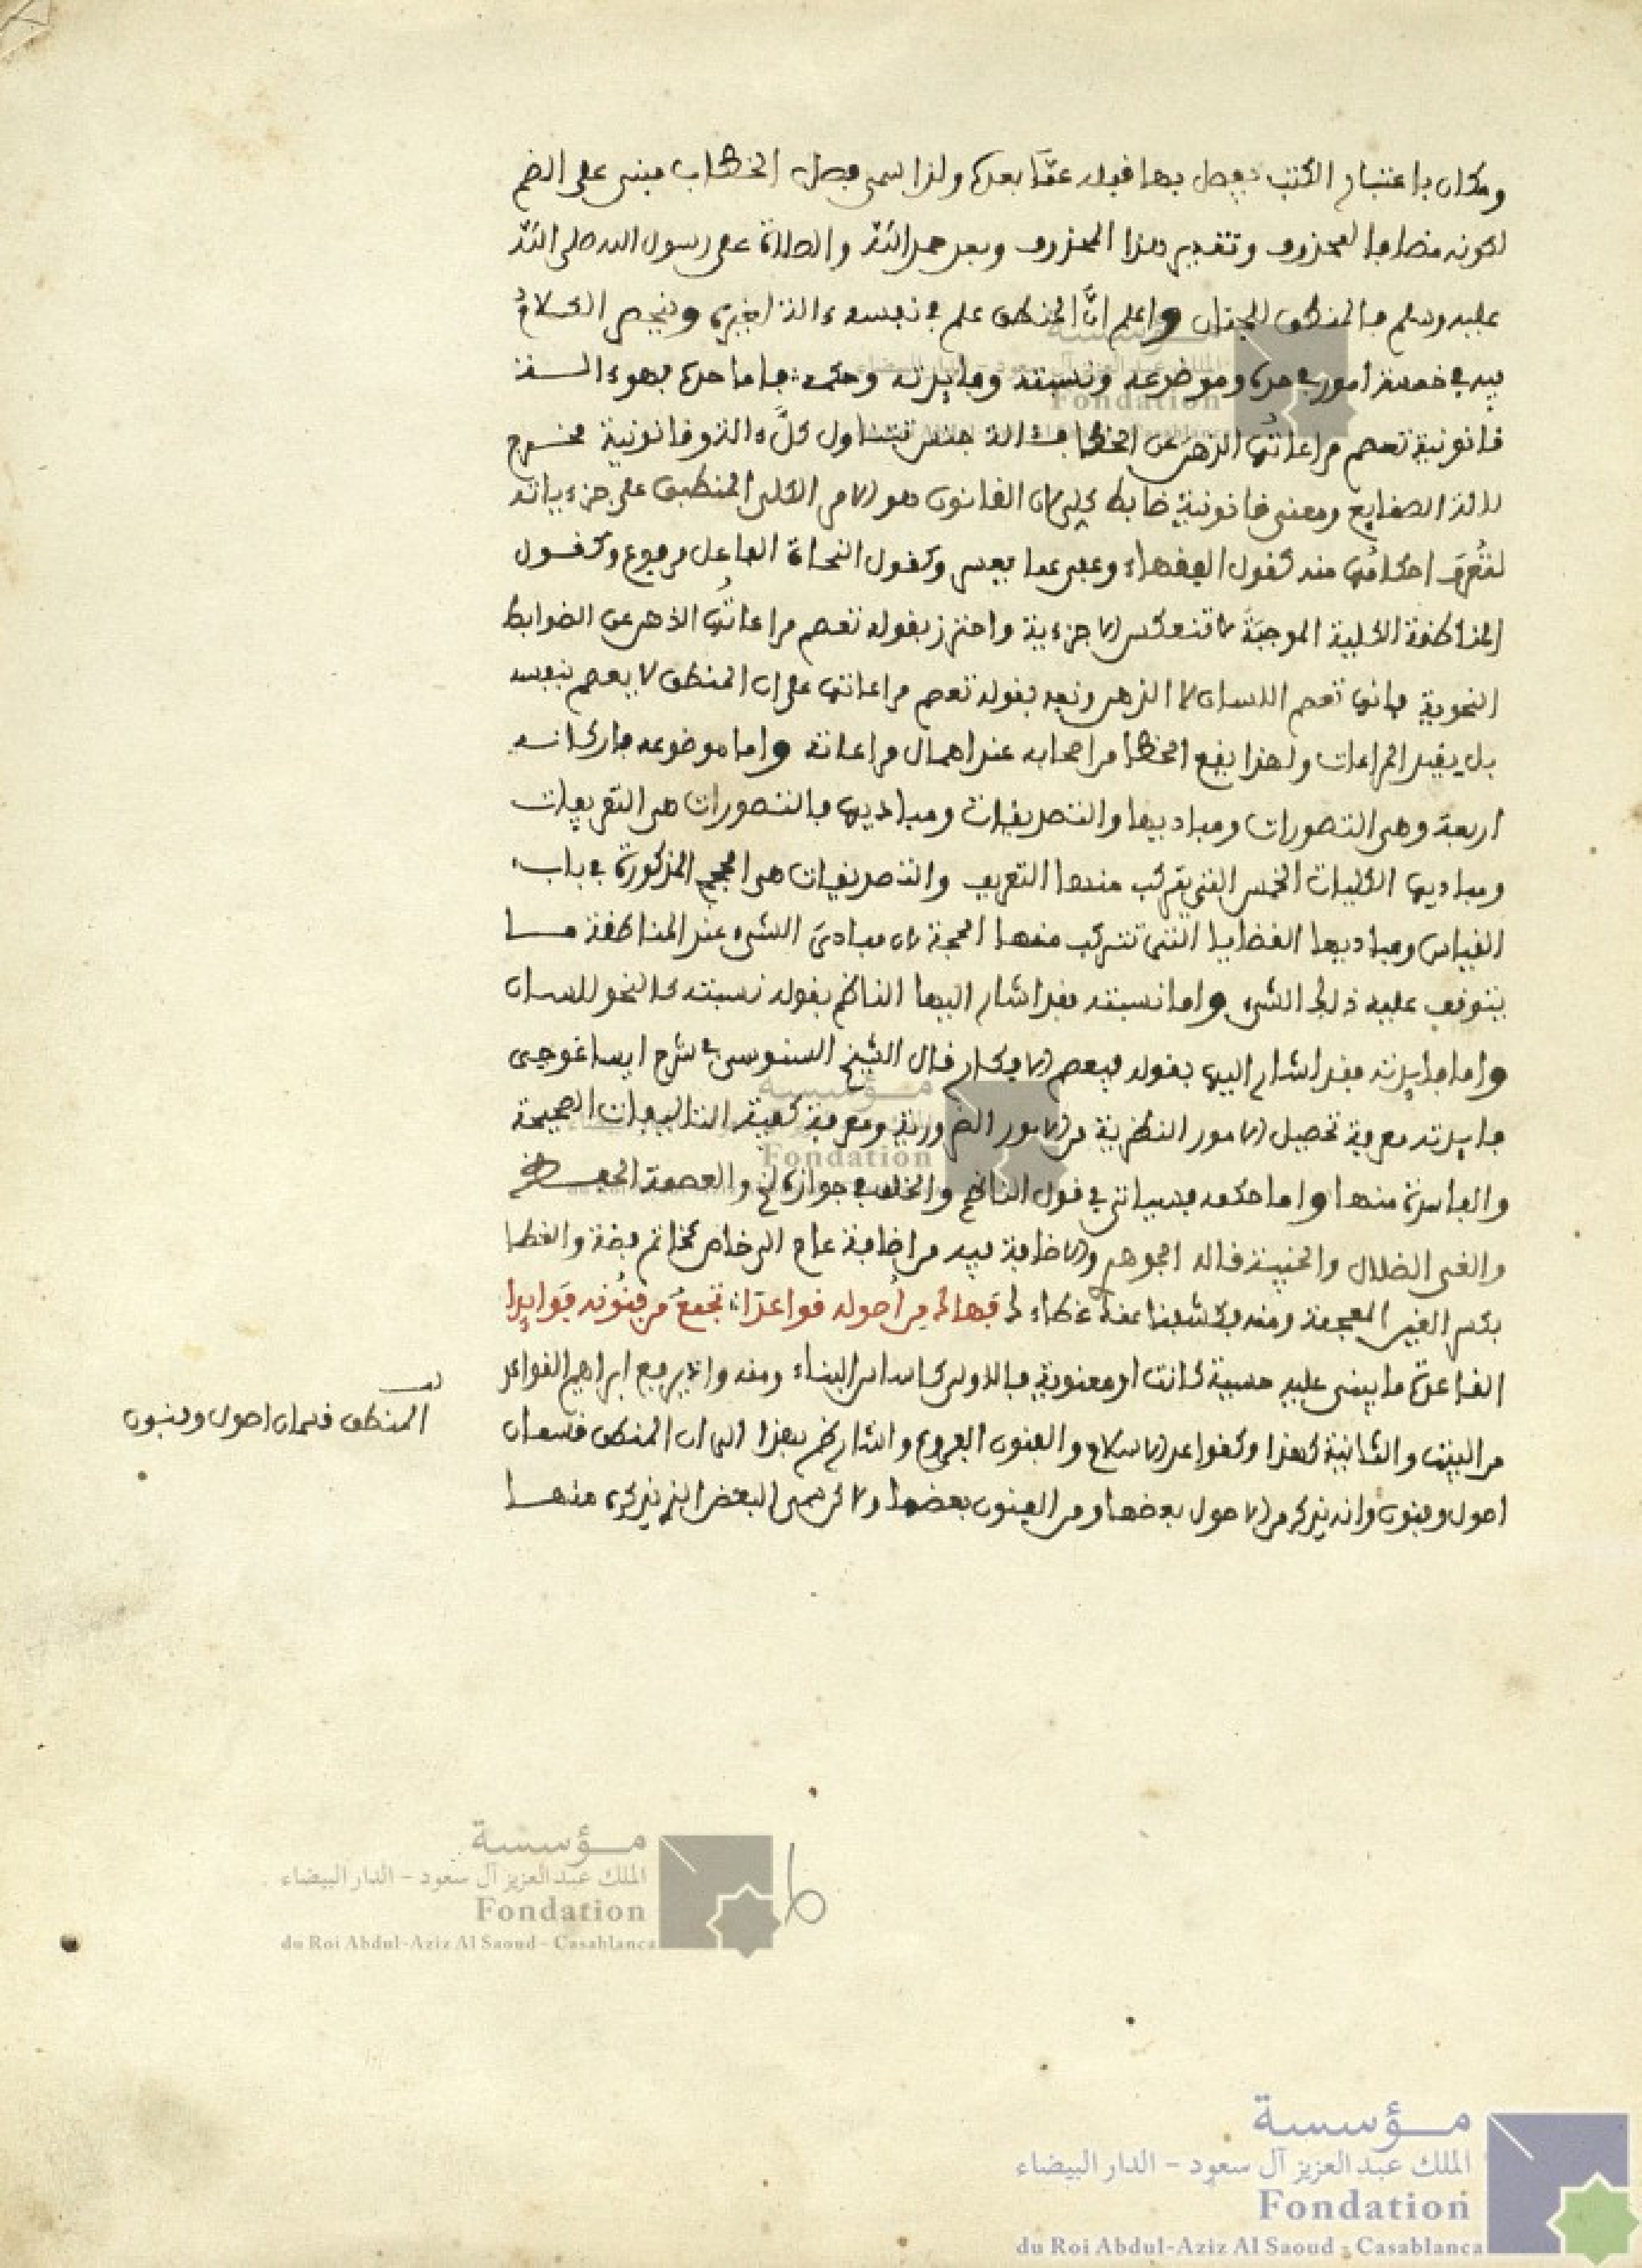 ومكان باعتبار الكتب يفصل بها قبله عمّا بعدها ولذا سمي فصل الخطاب مبني على الضم
لكونه مضافا لمحذوف وتقدير هذا المحذوف وبعد حمد الله والصلاة على رسول الله صلى الله
عليه وسلم فالمنطق للجنان واعلم انّ المنطق علم في نفسه ءالة لغيره وينحصر الكلام
فيه في خمسة امور في حده وموضوعه ونسبته وفايدته وحكمه فاما حده فهو ءالـــة
قانونية تعصم مراعاتُها الذهن عن الخطا فـءالة جنس يتناول كلَّ ءالة وقانونية مخـــرج
لءالة الصنايع ومعنى قانونية ضابط كلي لان القانون هو الامر الكلي المنطبق على جزءياته
لتُعرَف احكامُها منه كقول الفقهاء وكقول النحاة الفاعل مرفوع وكقـــول
المناطقة الكلية الموجبَة لا تنعكس الا جزءية واحترز بقوله تعصم مراعاتُها الذهن عن الضوابط
النحوية فانها تعصم اللسان لا الذهن ونبه بقوله تعصم مراعاتها على ان المنطق لا يعصم بنفسه
بل بقيد المراعات ولهذا يقع الخطا من اصحابه عند اهمال مراعاته واما موضوعه فاركانـــه
اربعة وهي التصورات ومباديها والتصديقات ومباديها فالتصورات هي التعريفات
ومباديها الكليات الخمس التي يتركب منها التعريف والتصديقات هي الحجج المذكورة في باب
القياس ومباديها القضايا التي تتركب منها الحجة لان مبادئ الشيء عند المناطقة مـــا
يتوقف عليه ذلك الشيء واما نسبته فقد اشار اليها الناظم بقوله نسبته كالنحو للسان
واما فايدته فقد اشار اليها بقوله فيعصم الافكار قال الشيخ السنوسي في شرح ايساغوجي
فايدته معرفة تحصيل الامور النظرية من الامور الضرورية ومعرفة كيفية التاليفات الصحيحة
والفاسدة منها واما حكمه فسياتي في قول الناظم والخلف في جواز الخ والعصمة الحفـــظ
والغي الضلال والخيبة قاله الجوهري والاضافة فيه من اضافة عام الى خاص كخاتم فضة والغطا
بكسر الغين المعجمة ومنه فكشفنا عنك غطاءك فهاك من اُصوله قواعدَا تجمعُ من فنُونه فَوايدا
القاعدة ما يبنى عليه حسية كانت او معنوية فالاولى كاساس البناء ومنه واذ يرفع ابراهيم القواعد
من البيت والثانية كهذا وكقواعد الاسلام والفنون الفروع واشار بهذا الى ان المنطق قسمان
اصول وفنون وانه يذكر من الاصول بعضها ومن الفنون بعضها ولاكن هي البعض الذي يذكره منهـــا
المنطق قسمان اصول وفنون
مؤسسة
الملك عبد العزيز آل سعود - الدار البيضاء
Fondation
du Roi Abdul-Aziz Al Saoud - Casablanca
مؤسسة
الملك عبد العزيز آل سعود - الدار البيضاء
Fondation
du Roi Abdul-Aziz Al Saoud - Casablanca